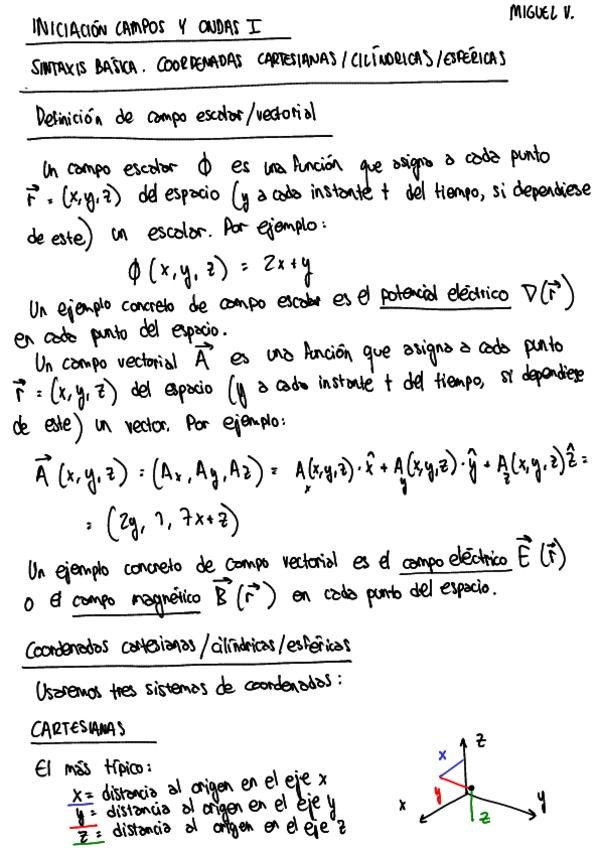 MIGUEL V.
INICIACIÓN CAMPOS Y ONDAS I
SINTAXIS BÁSICA. COORDENADAS CARTESIANAS/CILÍNDRICAS/ESFÉRICAS
Definición de campo escalar/vectorial
Un campo escalar ϕ es una función que asigna a cada punto
r⃗ = (x,y,z) del espacio (y a cada instante t del tiempo, si dependiese
de este) un escalar. Por ejemplo:
ϕ(x,y,z) = 2x+y
Un ejemplo concreto de campo escalar es el potencial eléctrico V(r⃗)
en cada punto del espacio.
Un campo vectorial A⃗ es una función que asigna a cada punto
r⃗ = (x,y,z) del espacio (y a cada instante t del tiempo, si dependiese
de este) un vector. Por ejemplo:
A⃗(x,y,z) = (Ax, Ay, Az) = Ax(x,y,z)·x̂ + Ay(x,y,z)·ŷ + Az(x,y,z)ẑ =
= (2y, 1, 7x+z)
Un ejemplo concreto de campo vectorial es el campo eléctrico E⃗(r⃗)
o el campo magnético B⃗(r⃗) en cada punto del espacio.
Coordenadas cartesianas/cilíndricas/esféricas
Usaremos tres sistemas de coordenadas:
CARTESIANAS
El más típico:
x = distancia al origen en el eje x
y = distancia al origen en el eje y
z = distancia al origen en el eje z
z
x
y
x
y
z